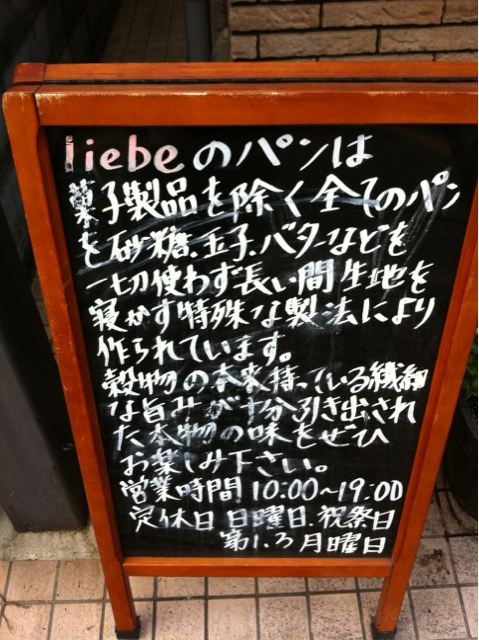 liebeのパンは
菓子製品を除く全てのパン
を砂糖.玉子.バターなどを
一切使わず長い間生地を
寝かす特殊な製法により
作られています。
穀物の本来持っている繊細
な旨みが十分引き出され
た本物の味をぜひ
お楽しみ下さい。
営業時間 10:00~19:00
定休日 日曜日.祝祭日
第1.3月曜日